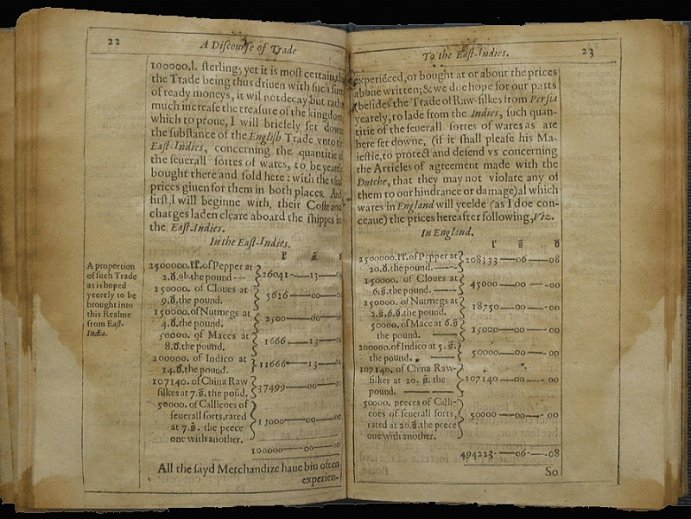 22
A Discourse of Trade
100000.l. sterling; yet it is most certain, that
the Trade being thus driuen with such a
of ready moneys, it will not decay but rather
much increase the treasure of the kingdom
which to proue, I will briefely set downe
the substance of the English Trade vnto the
East-Indies, concerning the quantitie of
the seuerall sortes of wares, to be yearely
bought there and sold here: with the
prices giuen for them in both places. And
first, I will beginne with, their Cost and
charges laden cleare aboard the shippes in
the East-Indies.
In the East-Indies.
l. s. d
A proportion
of such Trade
as is hoped
yeerely to be
brought into
this Realme
from East-
India.
2500000.lt. of Pepper at
2.d.ob. the pound --
26041—13—
150000. of Cloues at
9.d. the pound.
5626—00—
150000. of Nutmegs at
4.d. the pound.
2500—00—
50000. of Maces at
8.d. the pound.
1666—13—
200000. of Indico at
14.d. the pound.
11666—13—
107140. of China Raw
silkes at 7.s. the poūd.
37499—00—
50000. of Callicoes of
seuerall sorts, rated
at 7.s. the peece
one with another.
15000—00—
100000
All the sayd Merchandize haue bin often
experien-
To the East-Indies.
23
experiēced, or bought at or about the prices
aboue written; & we doe hope for our parts
besides the Trade of Raw-silkes from Persia
yearely, to lade from the Indies, such quan-
titie of the seuerall sortes of wares as are
here set downe, (if it shall please his Ma-
iestie, to protect and defend vs concerning
the Articles of agreement made with the
Dutche, that they may not violate any of
them to our hindrance or damage) al which
wares in England will yeelde (as I doe con-
ceaue) the prices hereafter following, Viz.
In England.
l s d
2500000.lt. of Pepper at
20.d. the pound.
208333—06—08
150000. of Cloues at
6.s. the pound. —
45000—00—00
150000. of Nutmegs at
2.s.6.d. the pound.
18750—00—00
50000. of Mace at 6.s
the pound. —
15000—00—00
200000. of Indico at 5.s.
the pound.
50000—00—00
107140. of China Raw-
silkes at 20.s. the
pound.
107140—00—00
50000. peeces of Calli-
coes of seuerall sorts,
rated at 20.s. the peece
one with another.
50000—00—00
494223—06—08
So